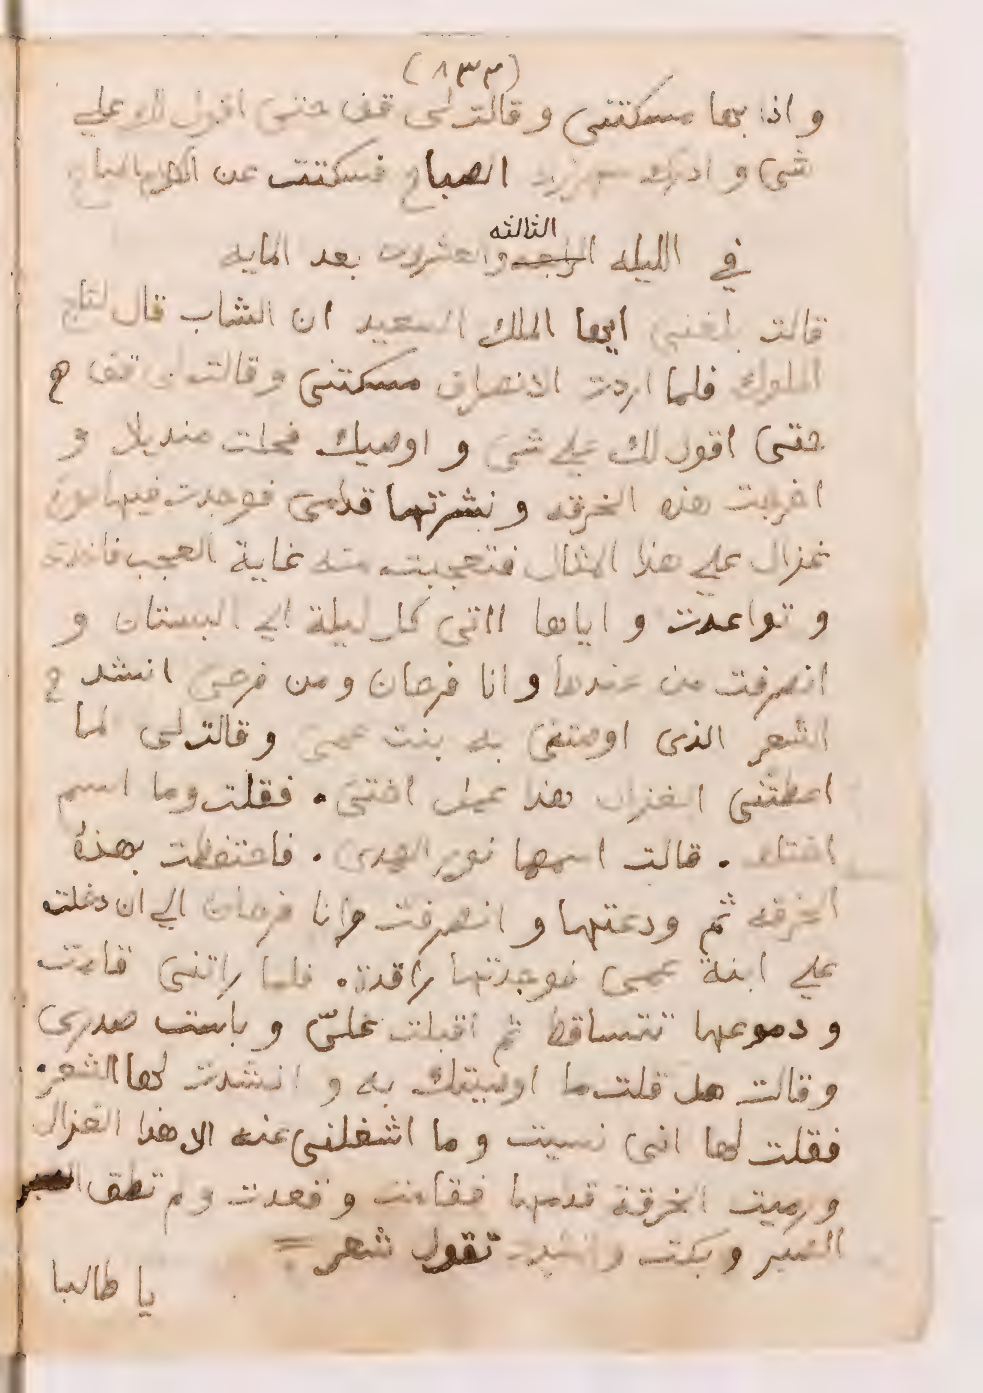 (٨٣٣)
و اذا بها مسكتتني و قالت لي قف حتي اقول لك علي
شي و ادرك شهرزاد الصباح فسكتت عن الكلام المباح
في الليله الرابعه الثالثه والعشرون بعد المايه
قالت بلغني ايها الملك السعيد ان الشاب قال لتاج
الملوك فلما اردت الانصراف مسكتني و قالت لي قف ح
حتي اقول لك علي شي و اوصيك فحلت منديلا و
اخرجت هذه الخرقه و نشرتها قدامي فوجدت فيها صورة
غزال علي هذا المثال فتعجبت منه غاية العجب فاخذته
و تواعدت و اياها ااتي كل ليلة الي البستان و
انصرفت من عندها و انا فرحان و من فرحي انشد ح
الشعر الذي اوصتني به بنت عمي و قالت لي لما
اعطتني الغزال هذا عمل اختي . فقلت وما اسم
اختك . قالت اسمها نور الهدي . فاحتفظت بهذه
الخرقه ثم ودعتها و انصرفت وانا فرحان الي ان دخلت
علي ابنة عمي فوجدتها راقدة . فلما راتني قامت
و دموعها تتساقط ثم اقبلت عليّ و باست صدري
و قالت هل قلت ما اوصيتك به و انشدت لها الشعر
فقلت لها اني نسيت و ما اشغلني عنه الا هذا الغزال
و رميت الخرقة قدامها فقامت و قعدت و لم تطق الصبر
الصبر و بكت و انشدت تقول شعر =
يا طالبا